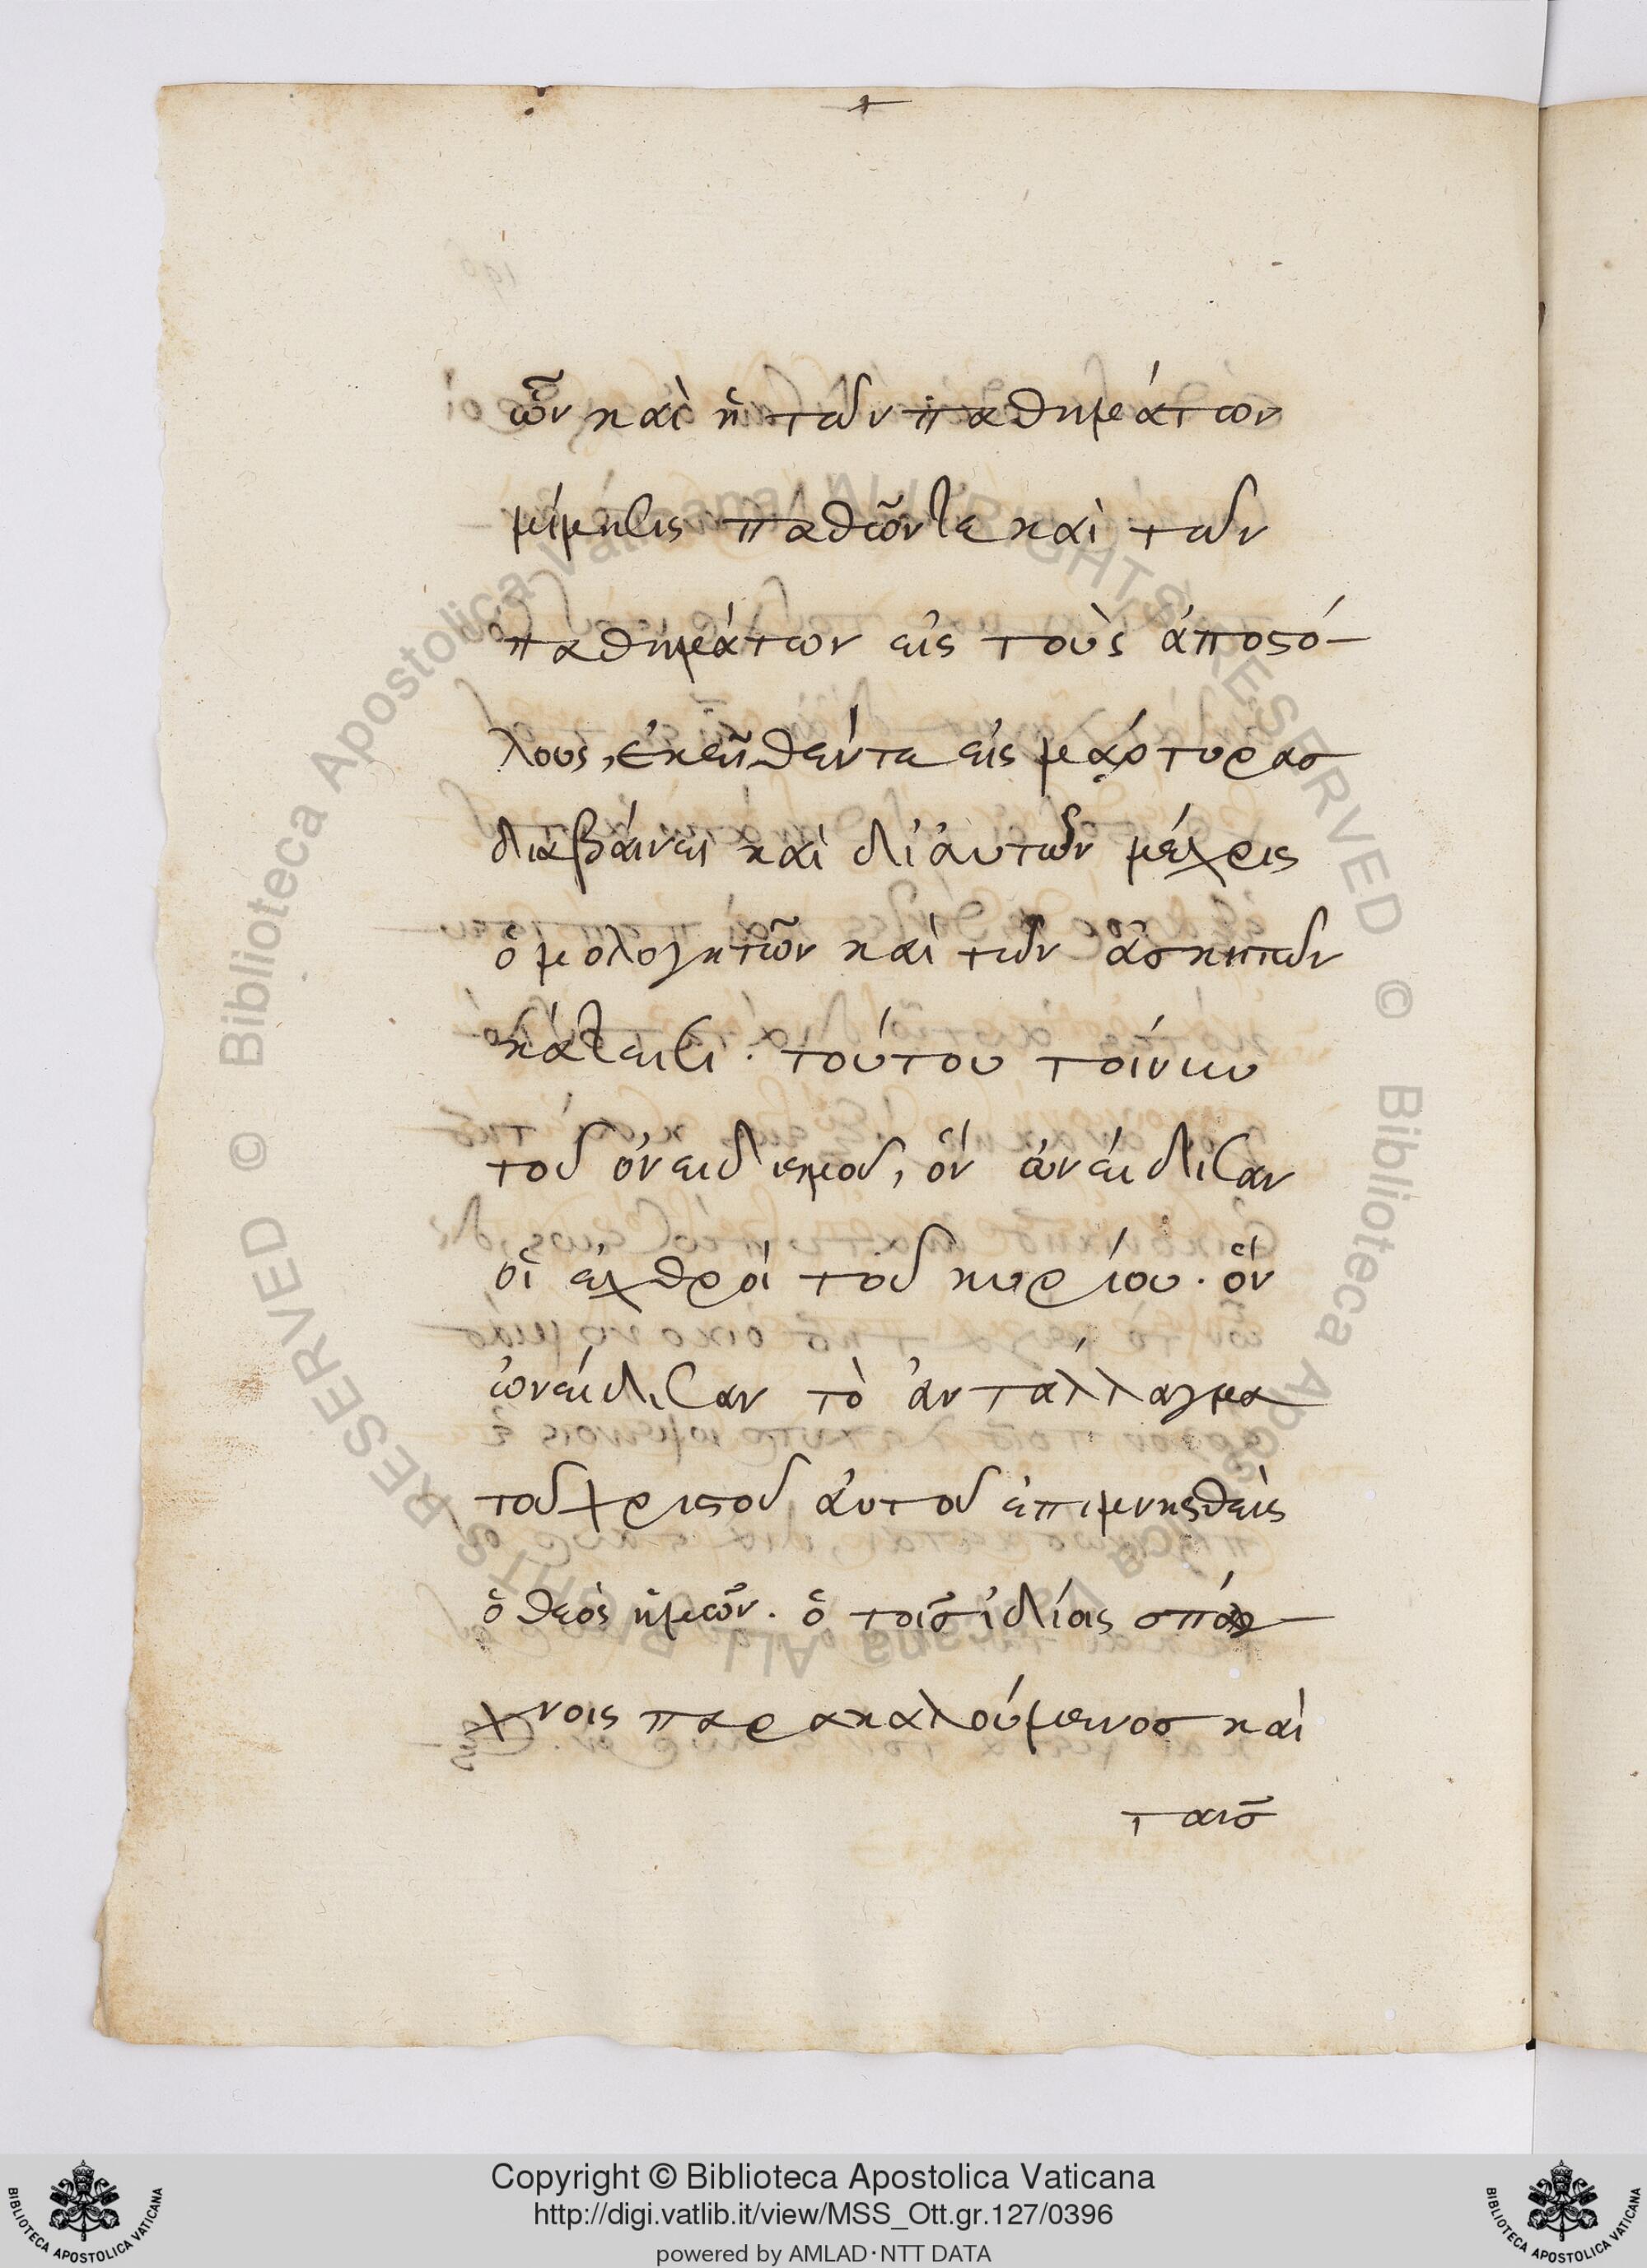 ὧν καὶ ἡ τῶν παθημάτων
μίμησις παθῶν τε καὶ τῶν
παθημάτων εἰς τοὺς ἀποστό-
λους, ἐκεῖθέν τε εἰς μάρτυρας
διαβάινει καὶ δι ἀυτῶν μέχρις
ὁμολογητῶν καὶ τῶν ἀσκητῶν
κάτεισι. τούτου τοίνυν
τοῦ ὀνειδισμοῦ, ὃν ὠνείδισαν
οἱ ἐχθροί τοῦ κυρίου. ὃν
ὠνείδισαν τὸ ἀντάλλαγμα
τοῦ χριστοῦ ἀυτοῦ ἐπιμνησθεὶς
ὁ θεὸς ἡμῶν. ὁ τοῖς ἰδίοις σπλά-
χνοις παρακαλούμενος καὶ
ταῖς
Copyright © Biblioteca Apostolica Vaticana
http://digi.vatlib.it/view/MSS_Ott.gr.127/0396
powered by AMLAD·NTT DATA
BIBLIOTECA APOSTOLICA VATICANA
BIBLIOTECA APOSTOLICA VATICANA
© Biblioteca Apostolica Vaticana ALL RIGHTS RESERVED
© Biblioteca Apostolica Vaticana ALL RIGHTS RESERVED